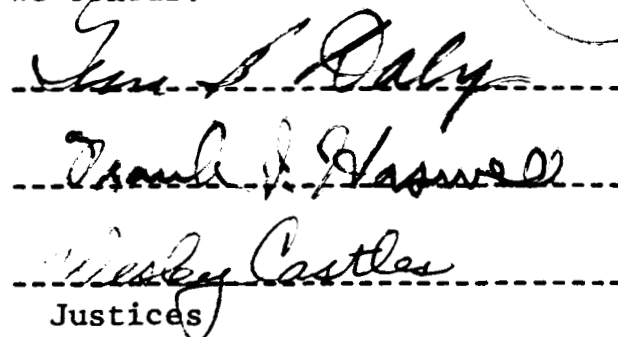 Gene B Daly
Frank I. Haswell
Wesley Castles
Justices